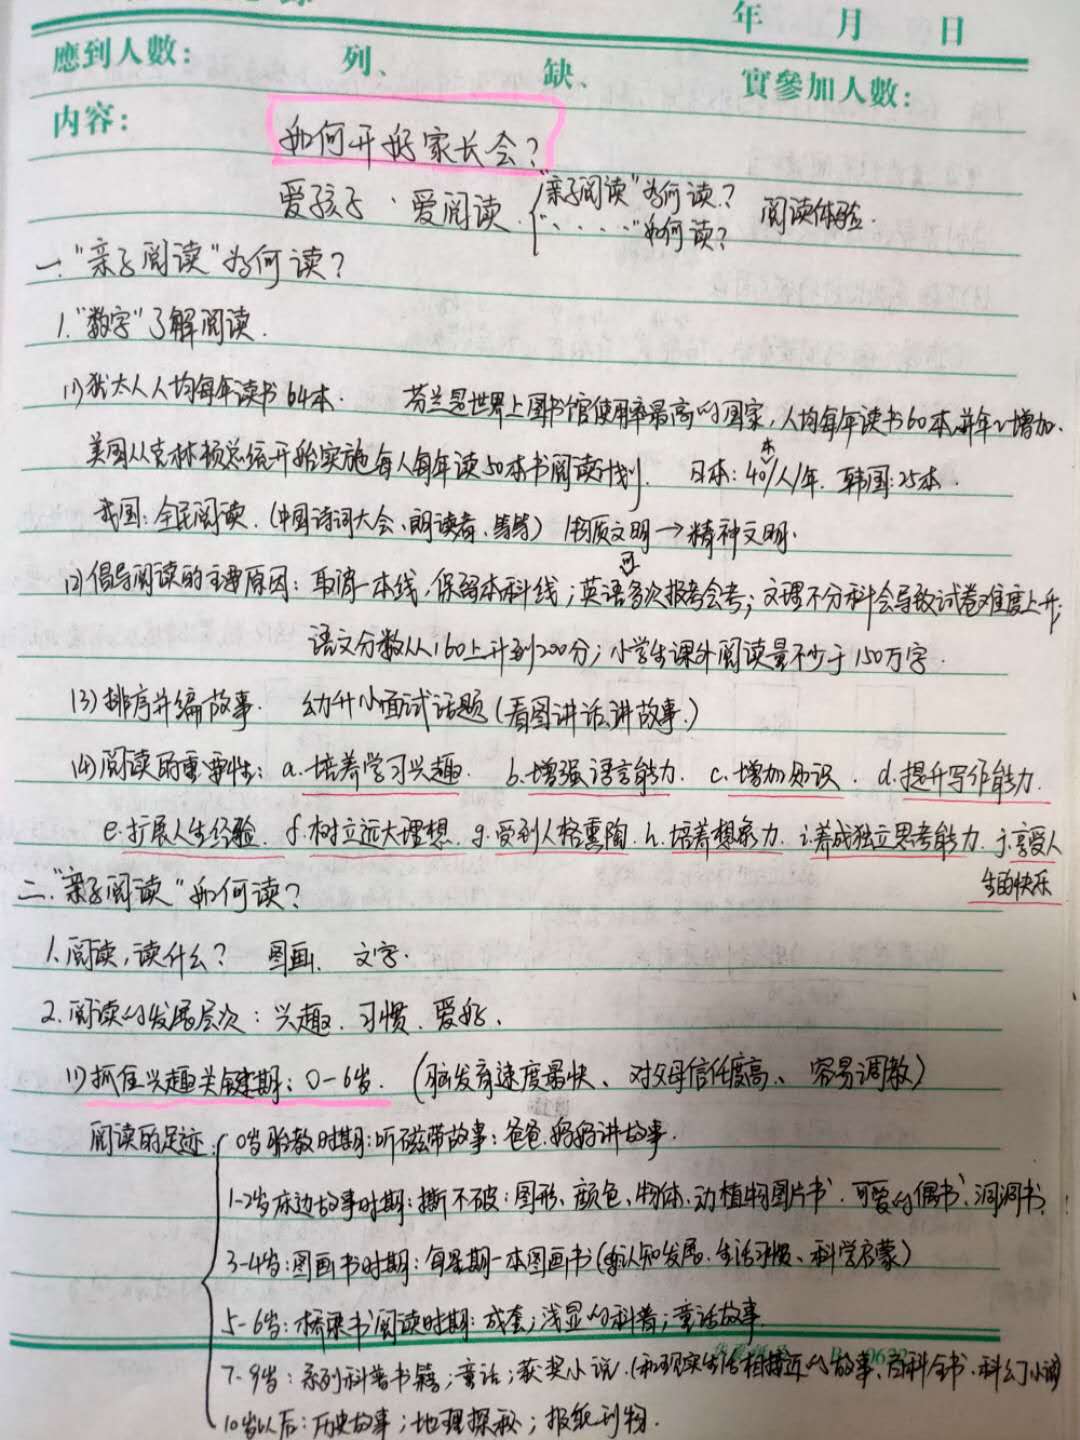 年 月 日
應到人數： 列、 缺、 實參加人數：
内容：
如何开好家长会？
爱孩子、爱阅读 "亲子阅读"为何读？ 阅读体验.
"····"如何读？
一."亲子阅读"为何读？
1."数字"了解阅读.
(1)犹太人人均每年读书64本. 芬兰是世界上图书馆使用率最高的国家，人均每年读书60本，并年年增加.
美国从克林顿总统开始实施每人每年读50本书阅读计划. 日本：40本/人/年. 韩国：25本.
我国：全民阅读.(中国诗词大会、朗读者、等等) 物质文明→精神文明.
(2)倡导阅读的主要原因：取消一本线，保留本科线；英语可多次报考会考；文理不分科会导致试卷难度上升；
语文分数从160上升到200分；小学生课外阅读量不少于150万字.
(3)排序并编故事. 幼升小面试话题(看图讲话、讲故事.)
(4)阅读的重要性：a.培养学习兴趣. b.增强语言能力. c.增加知识. d.提升写作能力.
e.扩展人生经验. f.树立远大理想. g.受到人格熏陶. h.培养想象力. i.养成独立思考能力. j.享受人
生的快乐
二."亲子阅读"如何读？
1.阅读，读什么？ 图画、文字.
2.阅读的发展层次：兴趣、习惯、爱好、
(1)抓住兴趣关键期：0-6岁. (脑发育速度最快、对父母信任度高、容易调教)
阅读的足迹
0岁胎教时期：听磁带故事：爸爸、妈妈讲故事.
1-2岁床边故事时期：撕不破：图形、颜色、物体、动植物图片书、可爱的偶书、洞洞书.
3-4岁：图画书时期：每星期一本图画书(认知发展、生活习惯、科学启蒙)
5-6岁：桥梁书阅读时期：成套；浅显的科普；童话故事.
7-9岁：系列科普书籍；童话；获奖小说.(和现实生活相接近的故事、百科全书、科幻小说)
10岁以后：历史故事；地理探秘；报纸刊物.